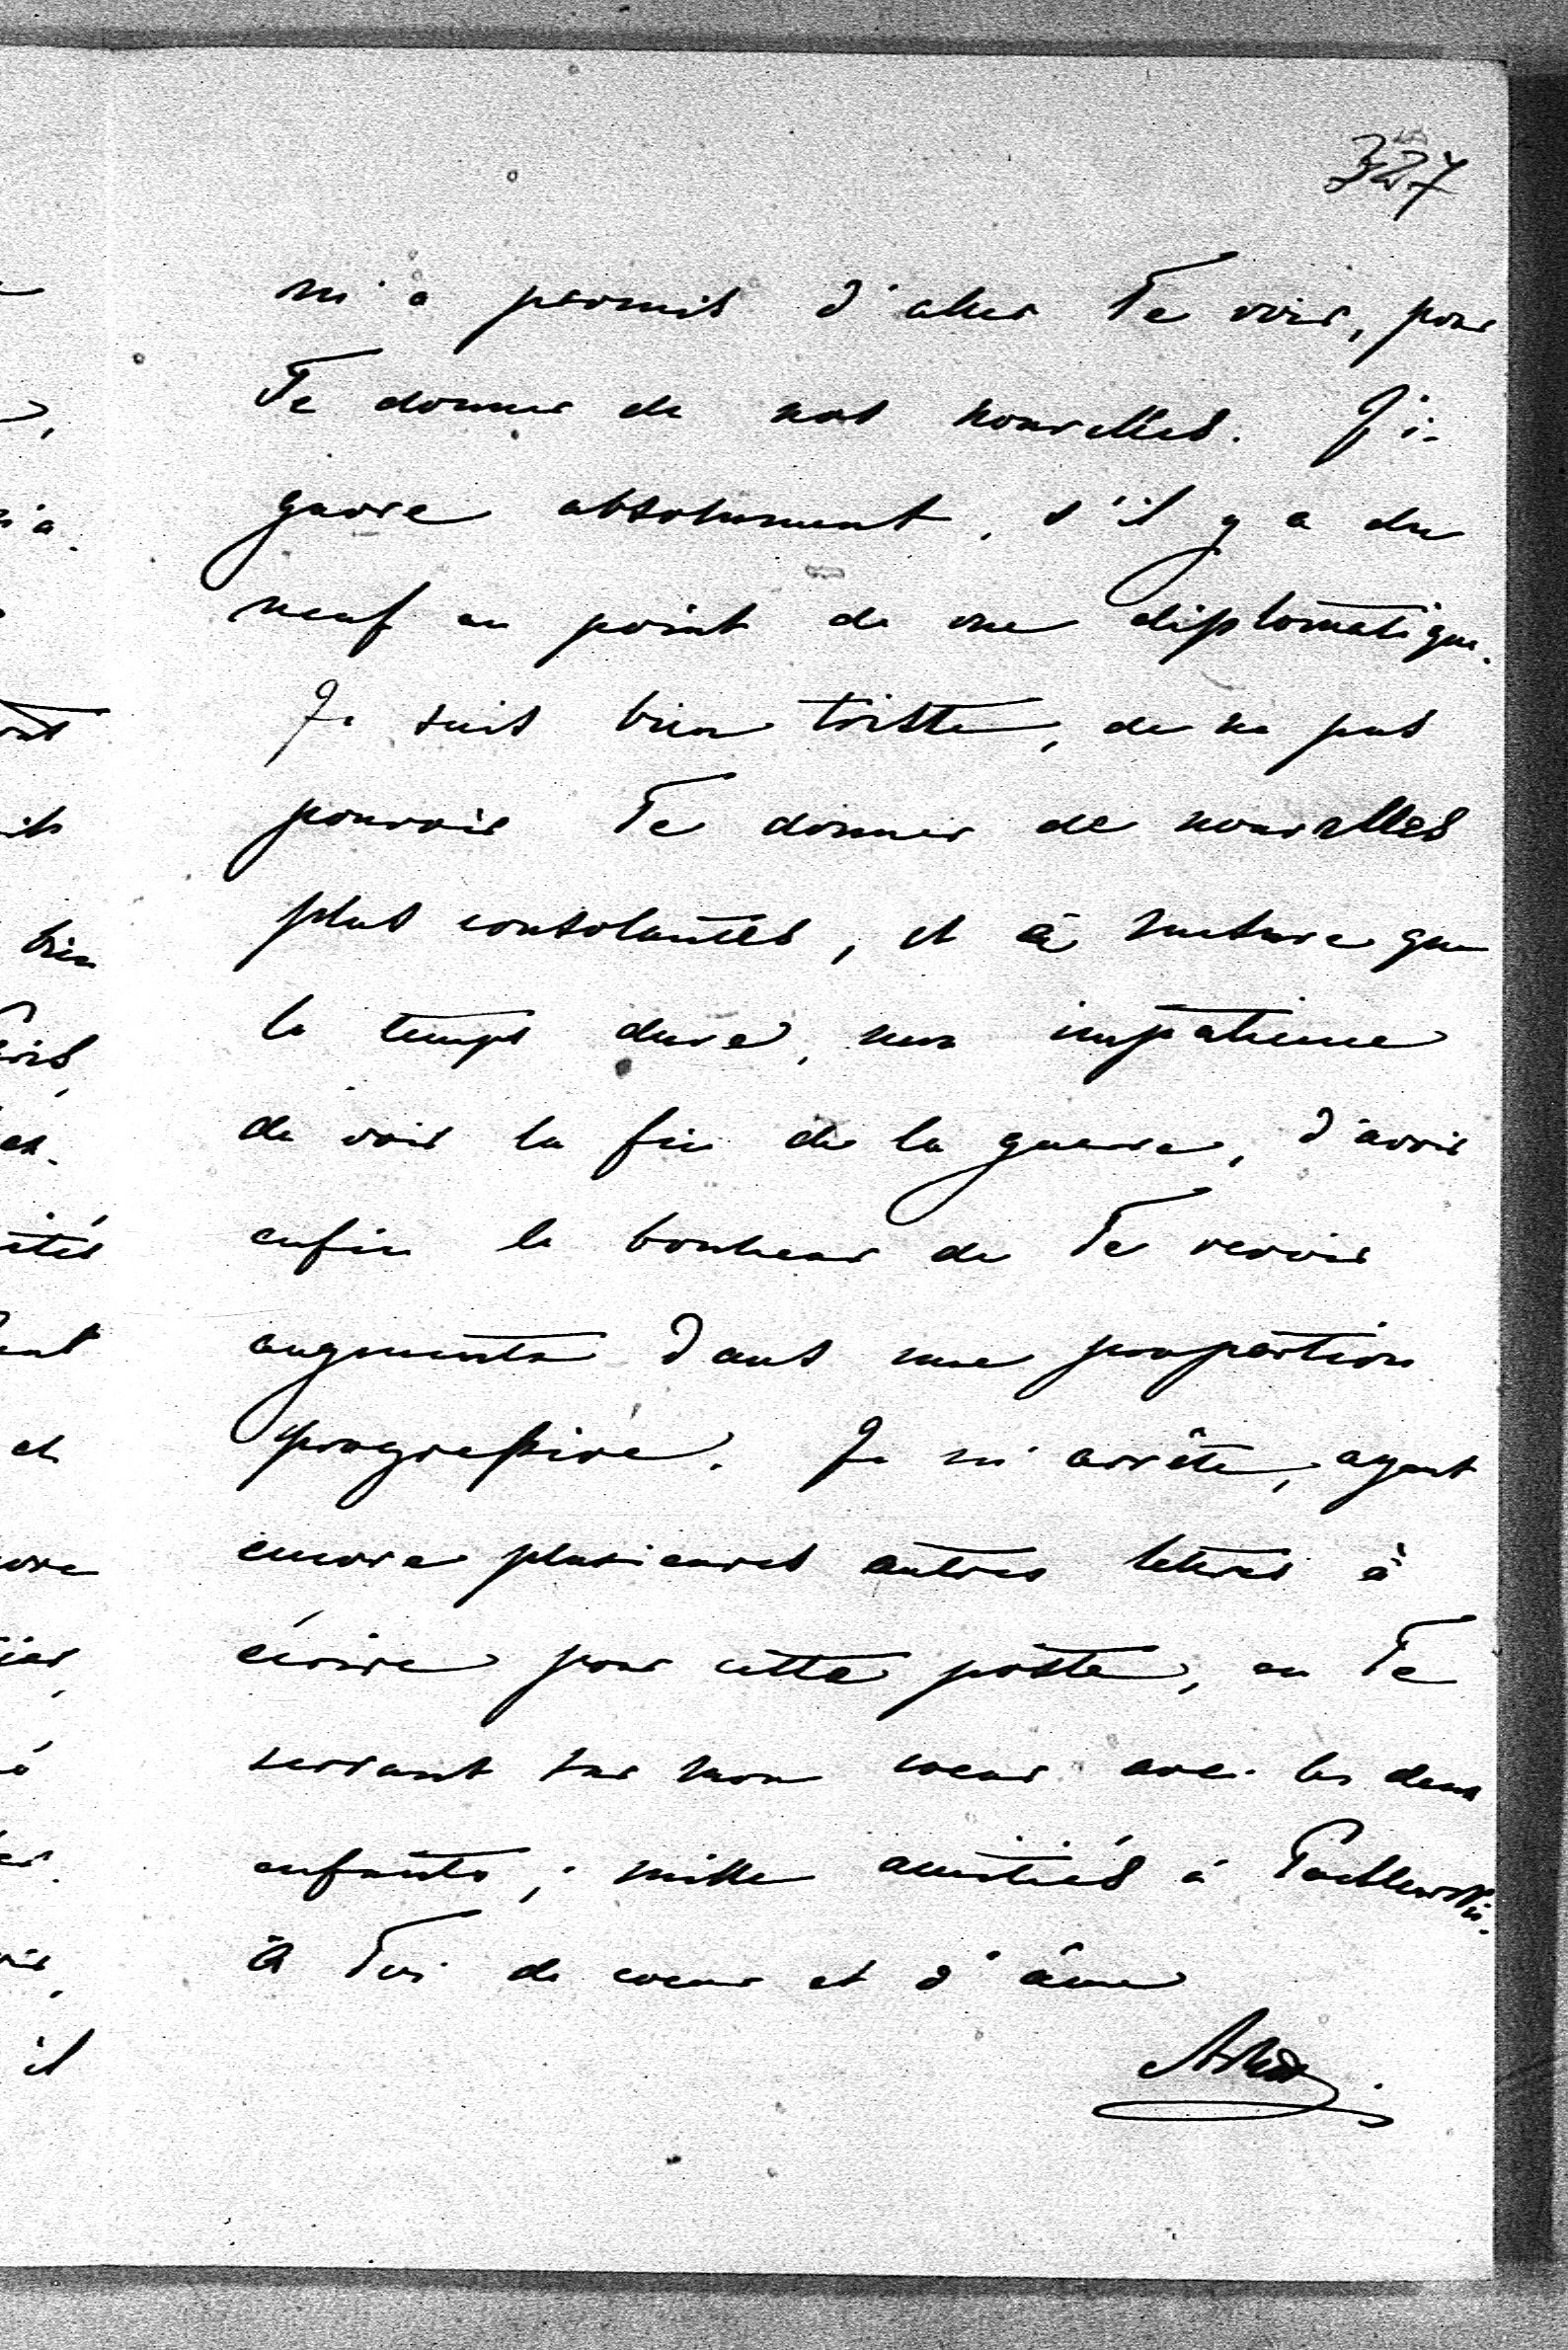 327
m'a promis d'aller Te voir, pour
Te donner de nos nouvelles. J'i-
gnore absolument, s'il y a du
neuf au point de vue diplomatique.
Je suis bien triste, de ne pas
pouvoir Te donner de nouvelles
plus consolantes, et à mesure que
le temps dure, mon impatience
de voir la fin de la guerre, d'avoir
enfin le bonheur de Te revoir
augmente dans une proportion
progressive. Je m'arrête, ayant
encore plusieures autres lettres à
écrire pour cette poste, en Te
serrant sur mon coeur avec les deux
enfants; mille amitiés à
à Toi de coeur et d'âme